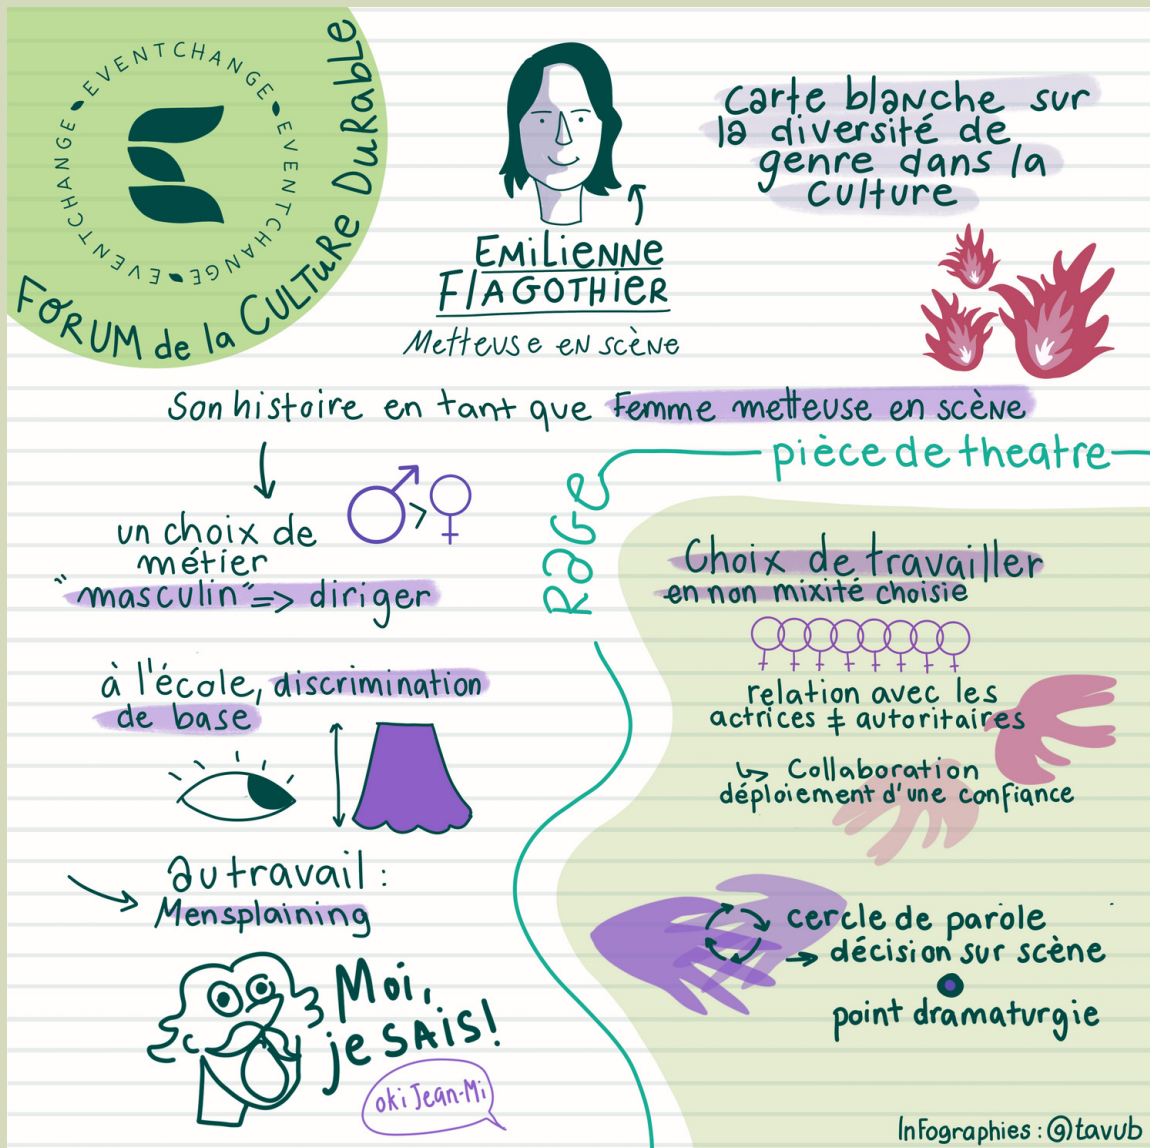 EVENTCHANGE • EVENTCHANGE • EVENTCHANGE • EVENTCHANGE
FORUM de la CULTURE DURABLE
EMILIENNE
FLAGOTHIER
Metteuse en scène
Carte blanche sur
la diversité de
genre dans la
culture
Son histoire en tant que femme metteuse en scène
un choix de
métier
"masculin" => diriger
♂ > ♀
à l'école, discrimination
de base
au travail :
Mensplaining
Moi,
je SAIS!
oki Jean-Mi
Rage
pièce de theatre
Choix de travailler
en non mixité choisie
relation avec les
actrices ≠ autoritaires
↳ Collaboration
déploiement d'une confiance
cercle de parole
→ décision sur scène
point dramaturgie
Infographies : @tavub